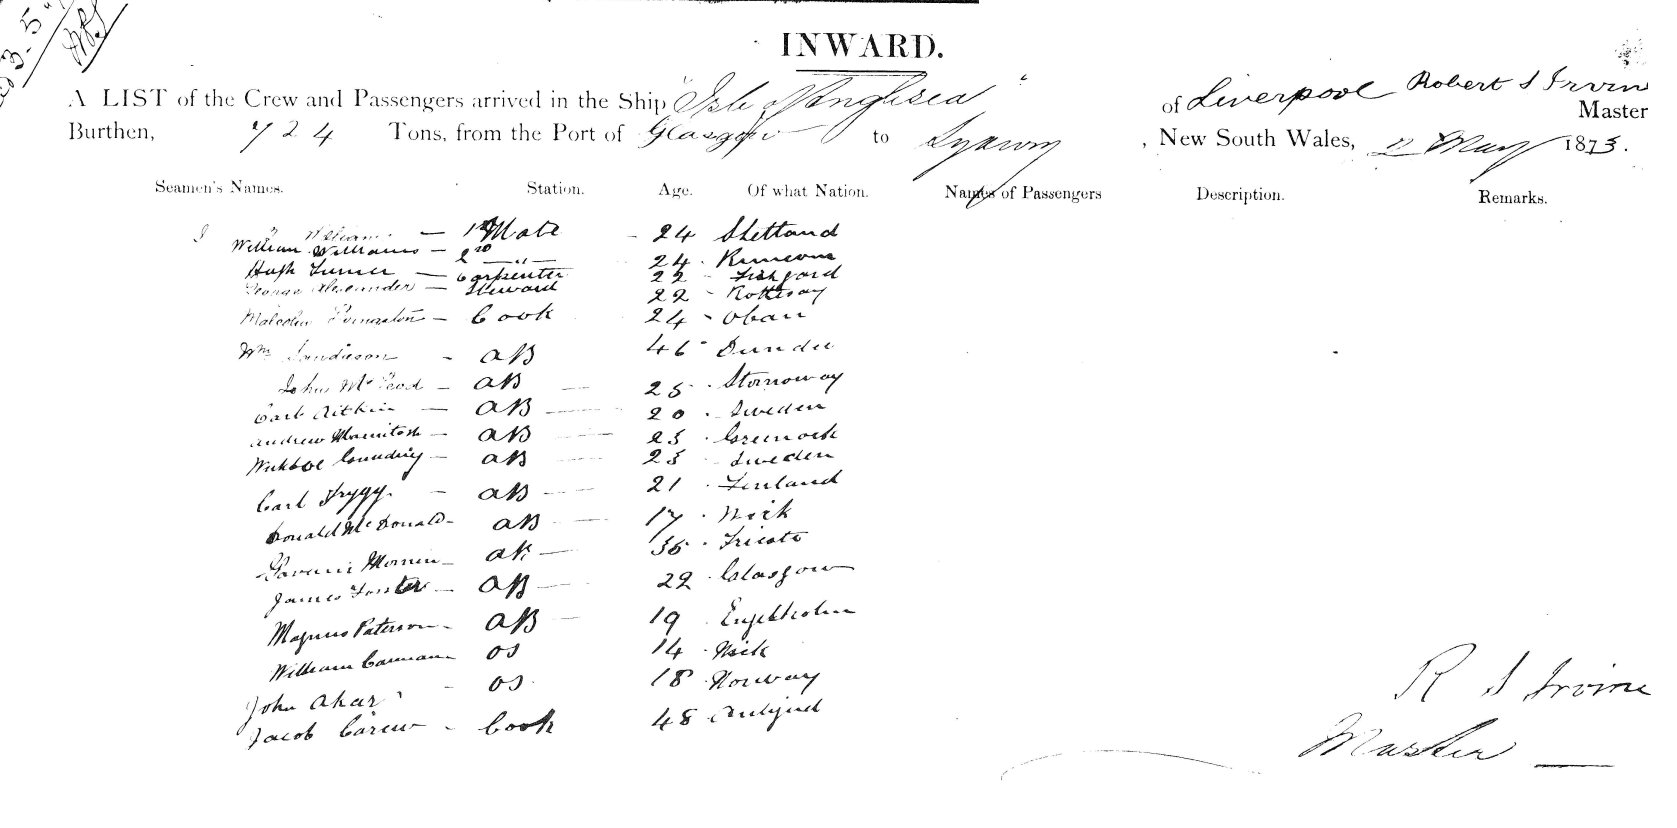 3-5
INWARD.
A LIST of the Crew and Passengers arrived in the Ship "Isle of Anglesea" of Liverpool Robert S Irvine Master
Burthen, 724 Tons, from the Port of Glasgow to Sydney, New South Wales, May 1873.
Seamen's Names. Station. Age. Of what Nation. Names of Passengers Description. Remarks.
— 1st Mate - 24 Shetland
William Williams — 2nd —"— 24 - Runcorn
Hugh Turner — Carpenter 22 - Fishguard
George Alexander — Steward 22 - Rothesay
Malcolm — Cook 24 - Oban
Wm - AB 46 - Dundee
John - AB — 25 - Stornoway
Carl Aitkin — AB — 20 - Sweden
Andrew Macintosh — AB — 23 - Greenock
AB — 23 - Sweden
Carl Trygg. - AB — 21 - Finland
Donald McDonald - AB — 17 - Wick
AB — 36 - Trieste
James Foster - AB — 22 - Glasgow
Magnus Paterson - AB - 19 -
William - OS 14 - Wick
John - OS - 18 - Norway
Jacob Carew - Cook 48
R S Irvine
Master —